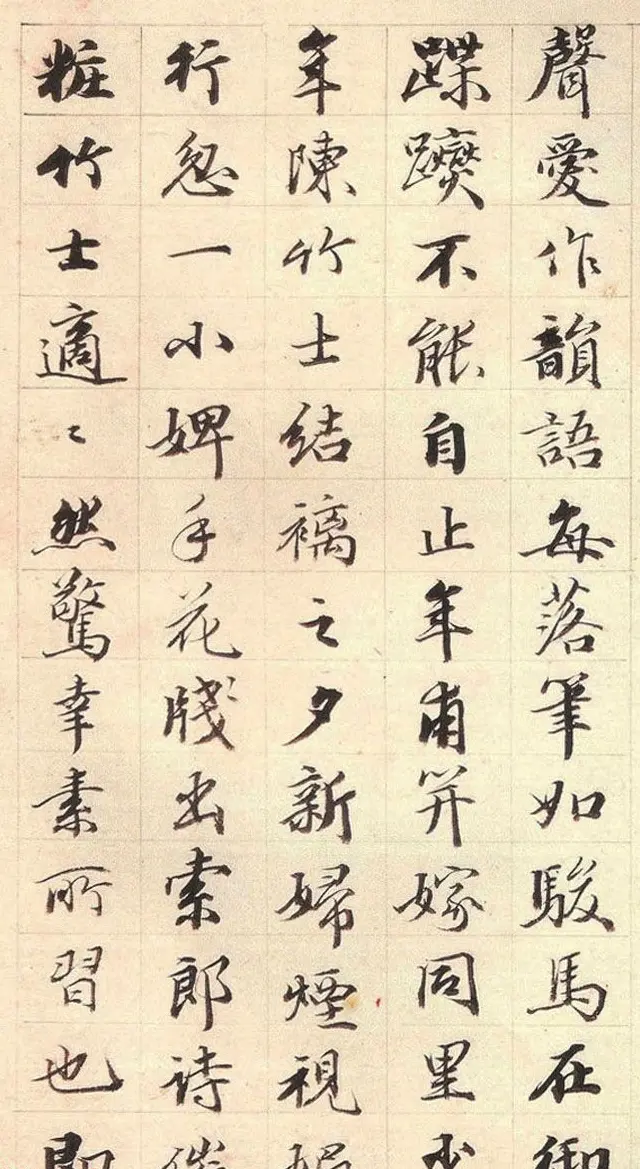 聲愛作韻語每落筆如駿馬在御
蹀躞不能自止年甫笄嫁同里少
年陳竹士結褵之夕新婦煙視媚
行忽一小婢手花牋出索郎詩催
粧竹士適〻然驚幸素所習也即